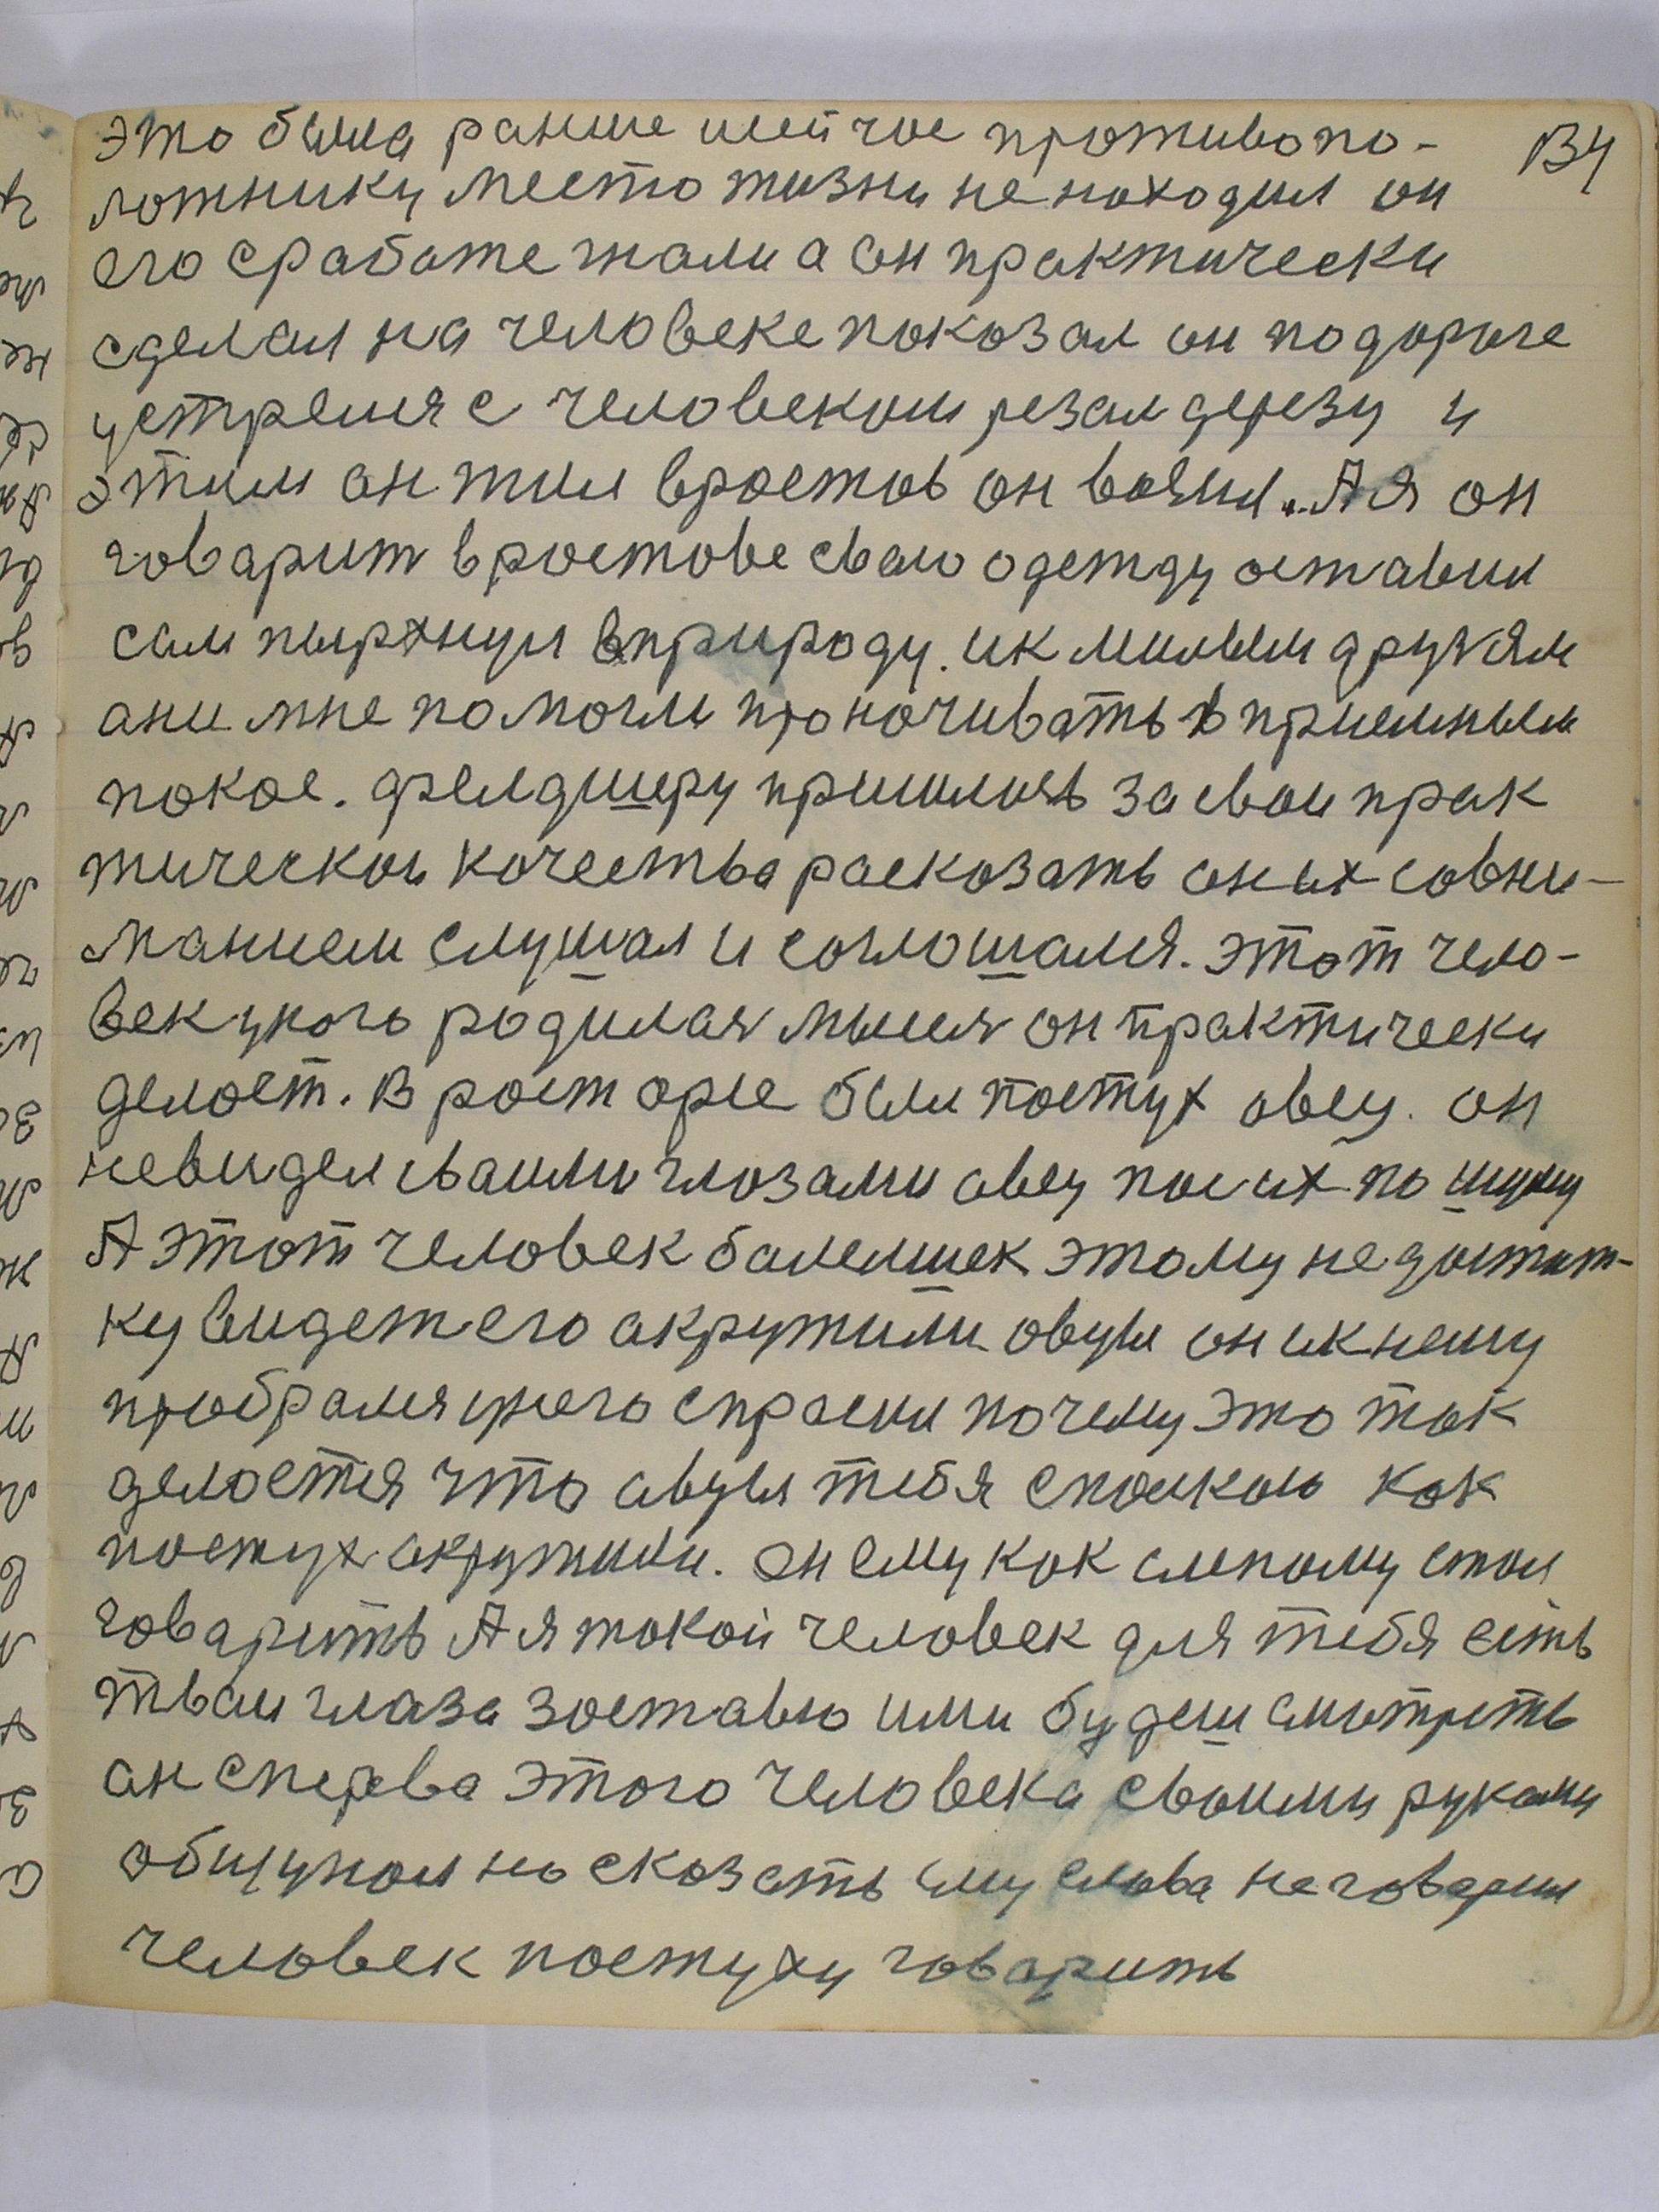 134
это была ранше шейчас противопо-
ложнику место жизни не находил он
его сработе гнали а он практически
сделал на человеке показал он подороге
устрелися с человеком резал дерезу и
этим он жил вростов он возил. А я он
говарит вростове сваю одежду оставил
сам пырхнул вприроду. ик милым друзям
ани мне помогли проночивать в приемным
покое. фелдшеру пришлось за свои прак
тическои качества расказать он их совни-
манием слушал и соглошался. этот чело-
век укого родилася мысля он практически
делает. В ростоше был пастух овец. он
невидел сваими глазами овец пас их по шуму
А этот человек балелшек этому недостат-
ку видет его акружили овцы он ик нему
пробрался унего спрасил почему это так
делается что авцы тебя спаикою как
пастух акружили. он ему как слепому стал
говарить А я такой человек для тебя есть
тваи глаза заставю ими будеш смотреть
ан сперва этого человека сваими руками
общупал но сказать ему слова не говарил
человек пастуху говарить